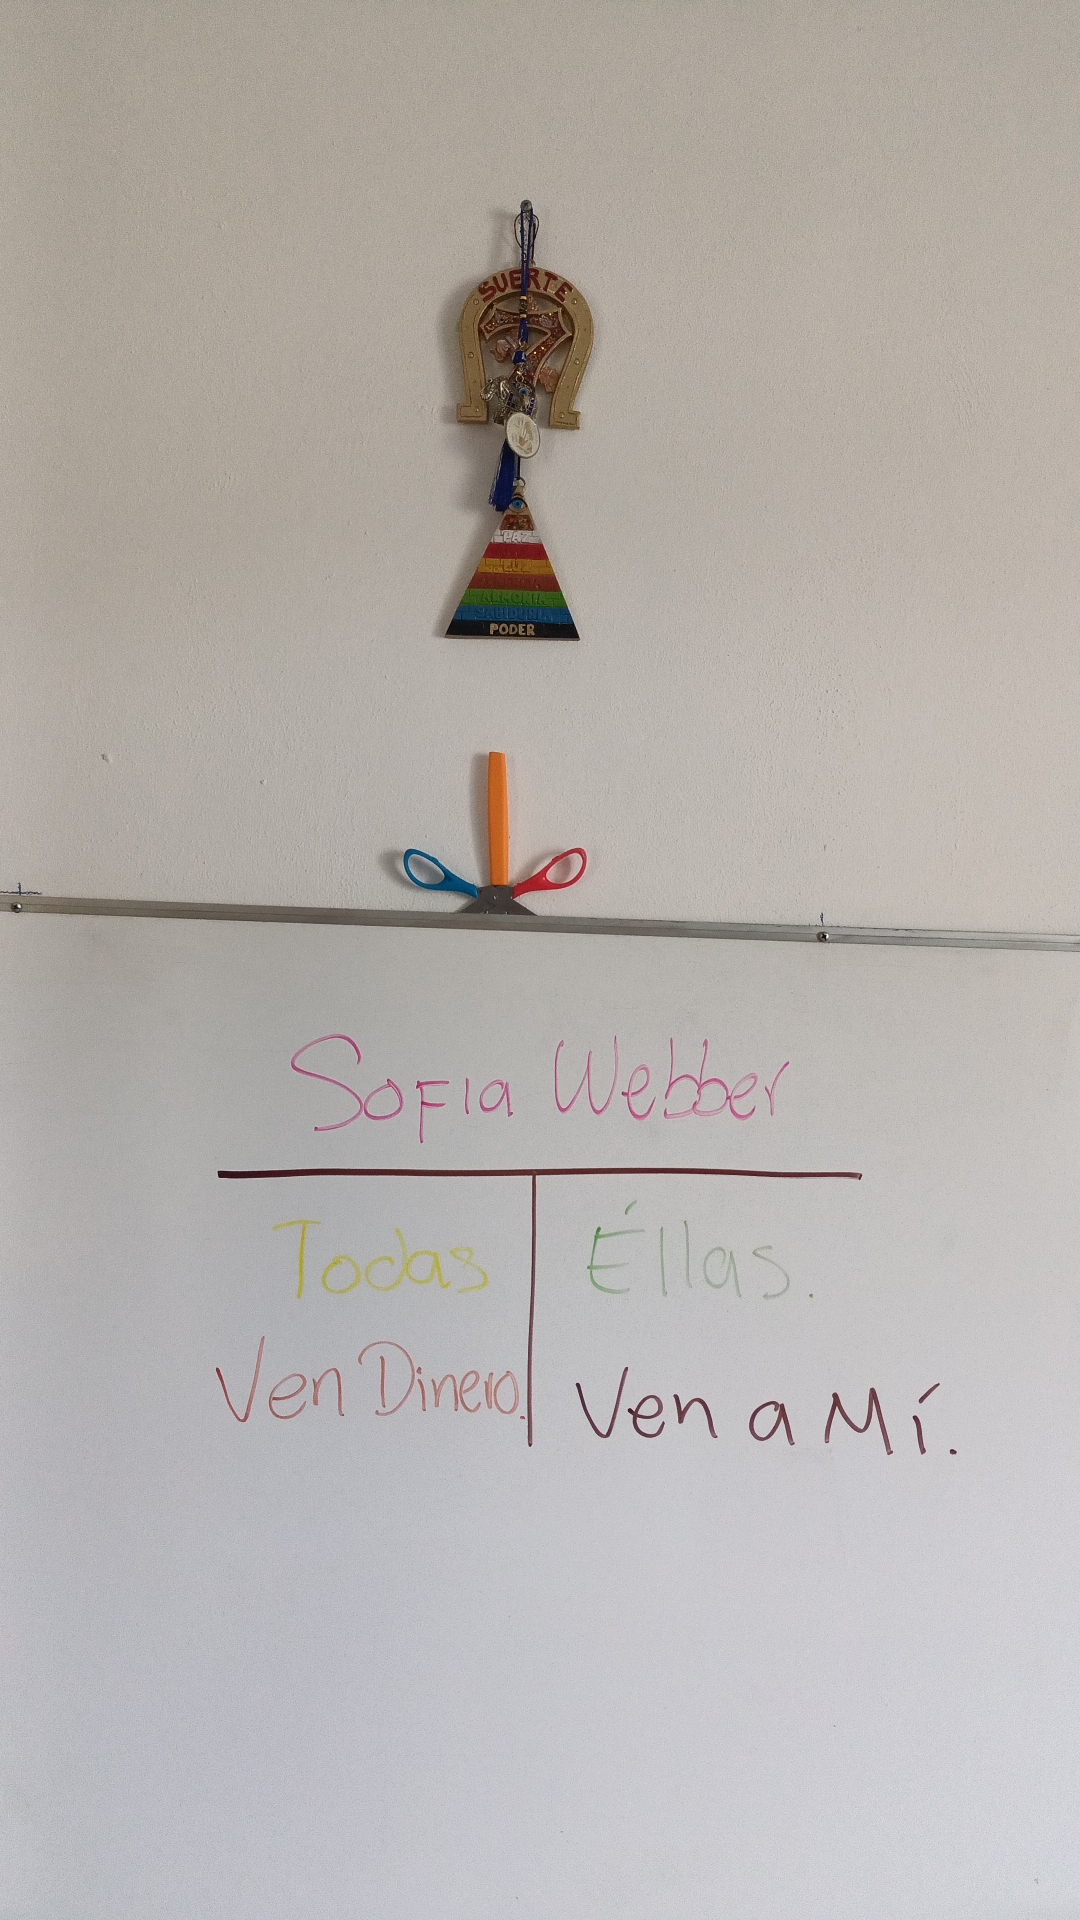 SUERTE
7
PAZ
LUZ
ARMONIA
SABIDURIA
PODER
Sofia Webber
Todas Éllas.
Ven Dinero. Ven a Mí.